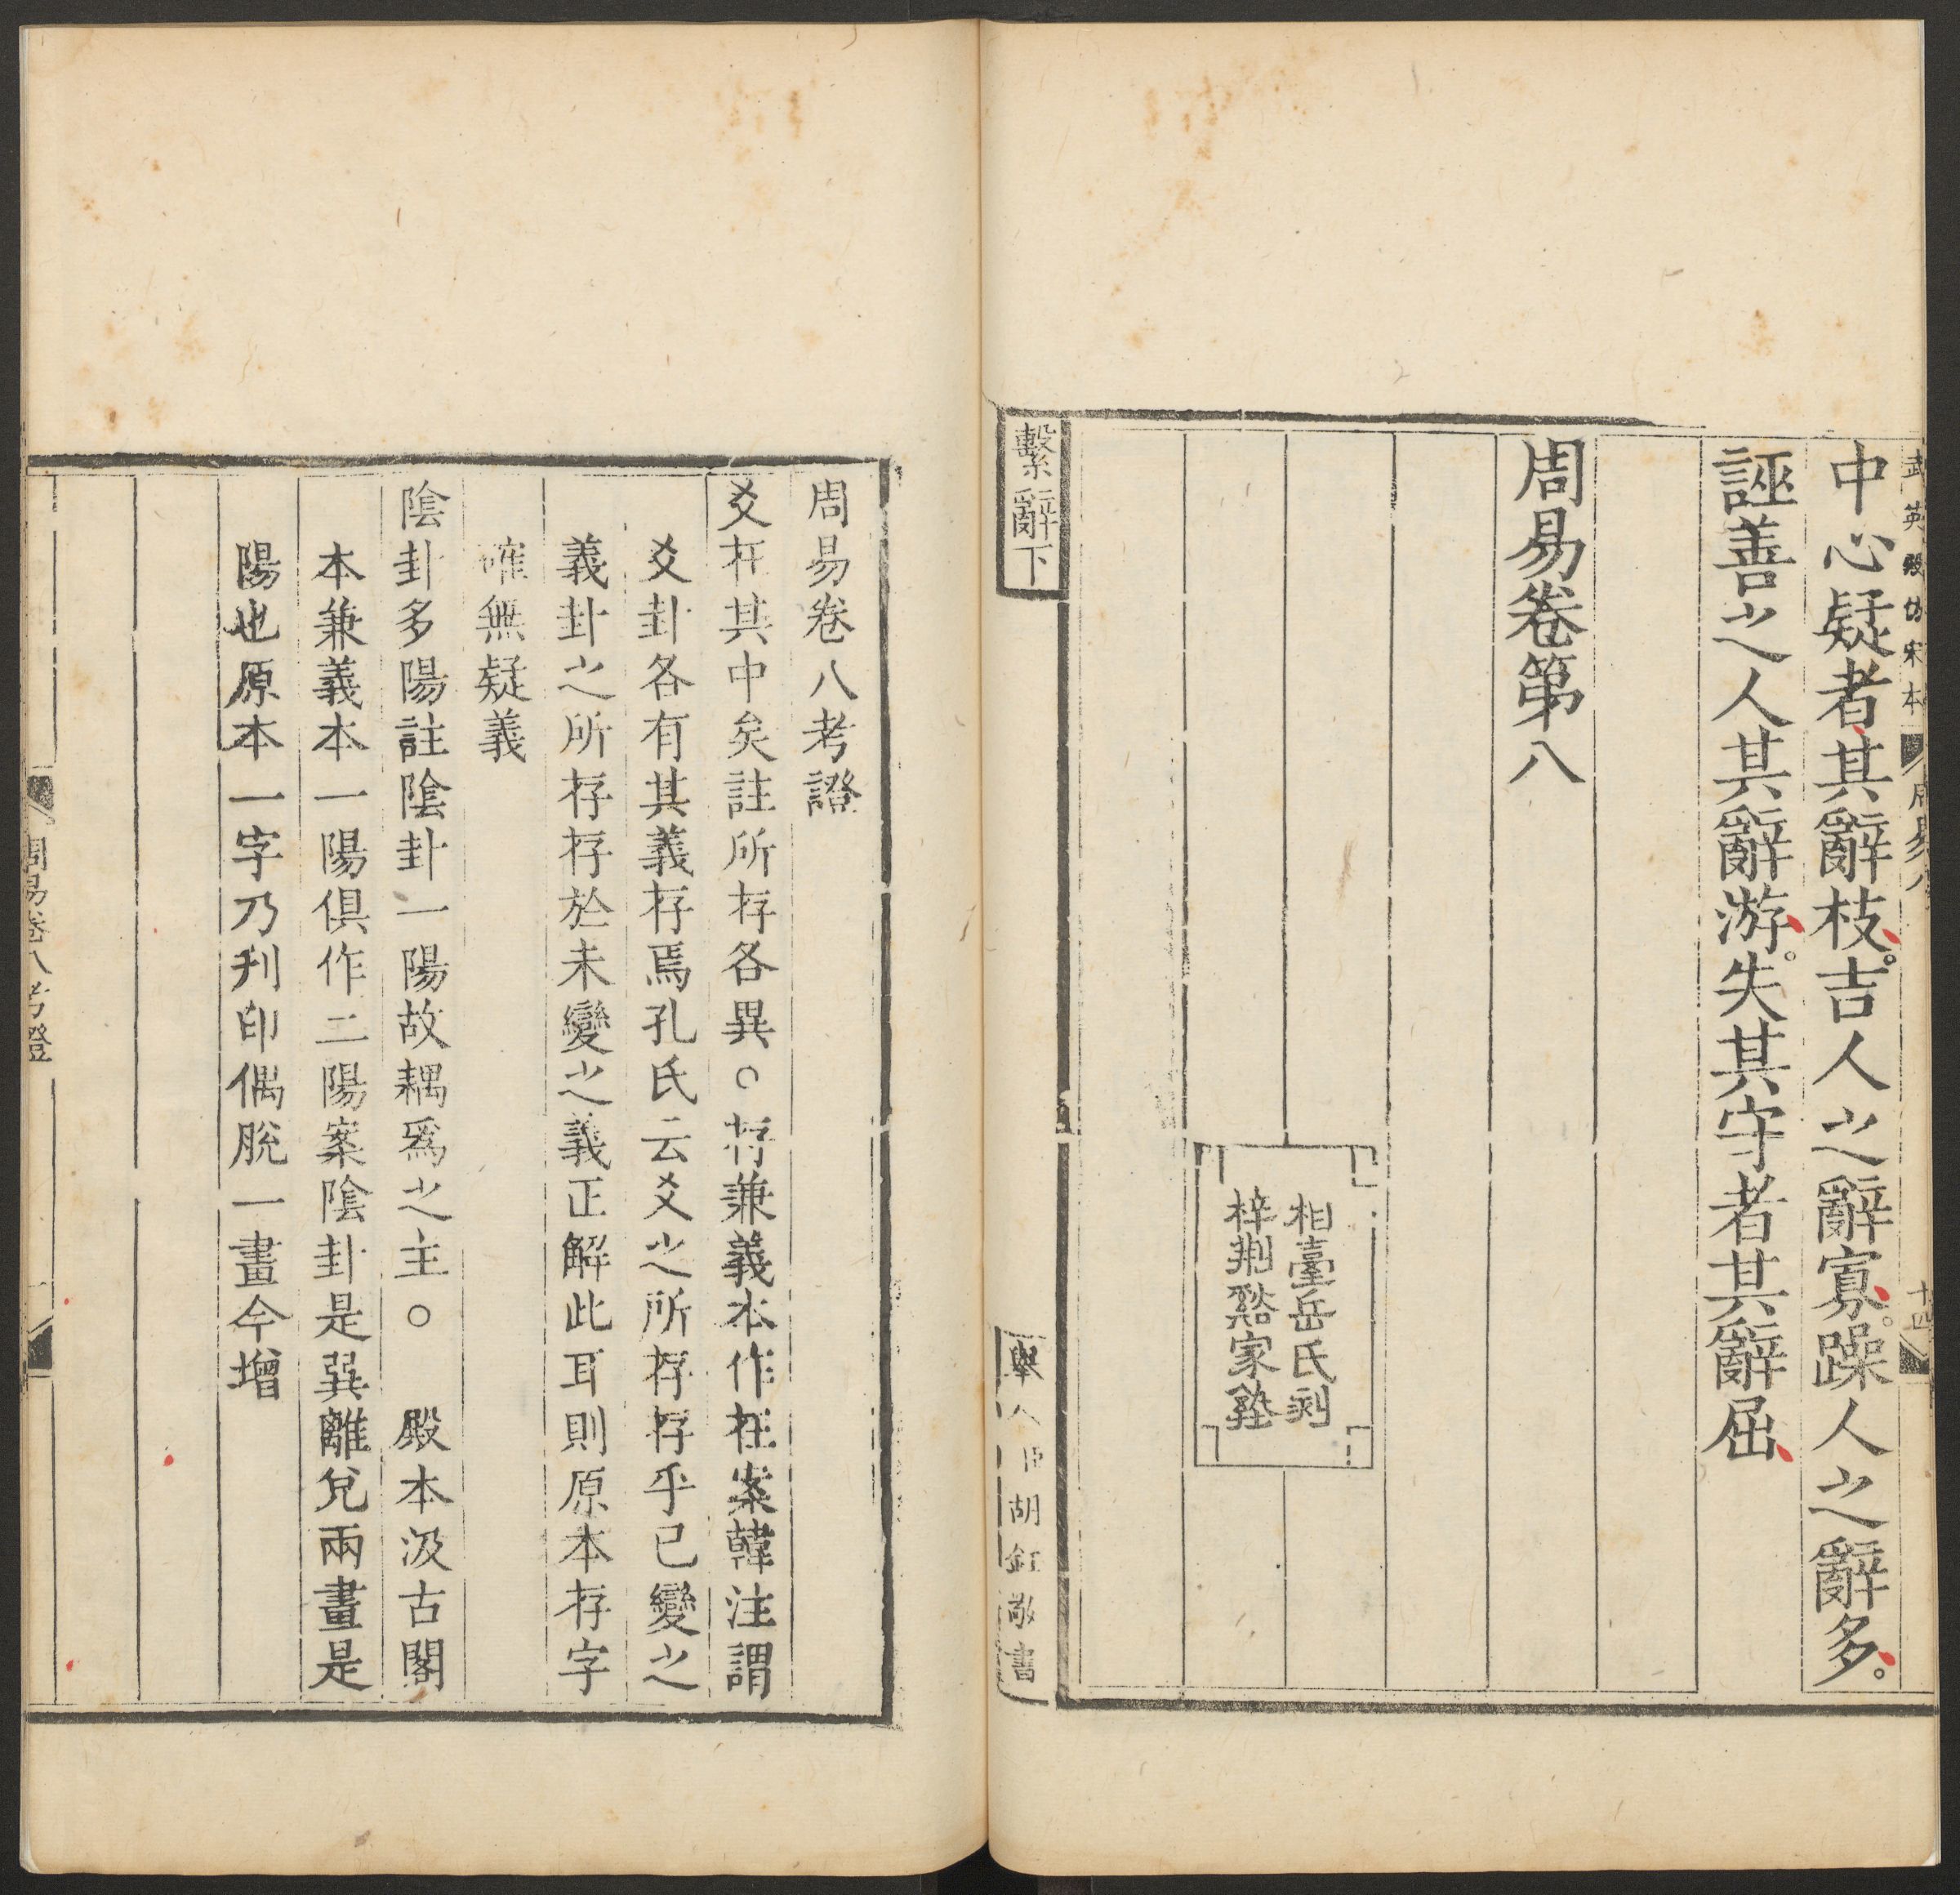 武英殿仿宋本 周易八 十四
中心疑者其辭枝。吉人之辭寡。躁人之辭多。
誣善之人其辭游。失其守者其辭屈
周易卷第八
相臺岳氏刻
梓荆谿家塾
繫辭下
舉人臣胡釭敬書
周易卷八考證
爻在其中矣註所存各異○存兼義本作在案韓注謂
爻卦各有其義存焉孔氏云爻之所存存乎已變之
義卦之所存存於未變之義正解此耳則原本存字
確無疑義
陰卦多陽註陰卦一陽故耦爲之主○ 殿本汲古閣
本兼義本一陽俱作二陽案陰卦是巽離兌兩畫是
陽也原本一字乃刋印偶脫一畫今增
周易卷八考證 一